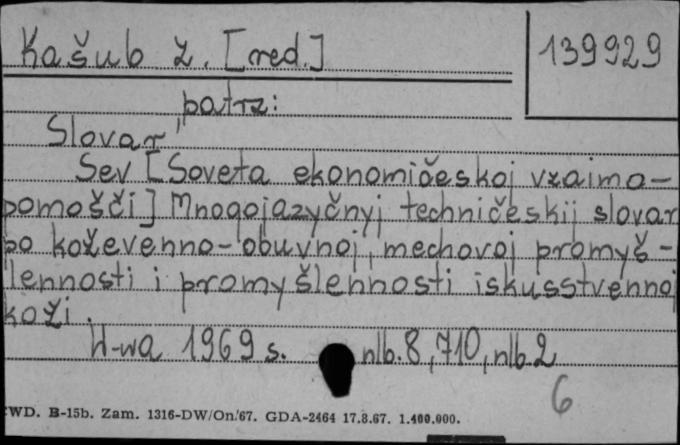 Kašub Z. [red.]
139929
patrz:
Slovar'
Sev [Soveta ekonomičeskoj vzaimo-
pomošči] Mnogojazyčnyj techničeskij slovar
po koževenno-obuvnoj, mechovoj promyš-
lennosti i promyšlennosti iskusstvennoj
koži.
W-wa 1969 s. nlb. 8, 710, nlb. 2
6
WD. B-15b. Zam. 1316-DW/On/67. GDA-2464 17.8.67. 1.400.000.